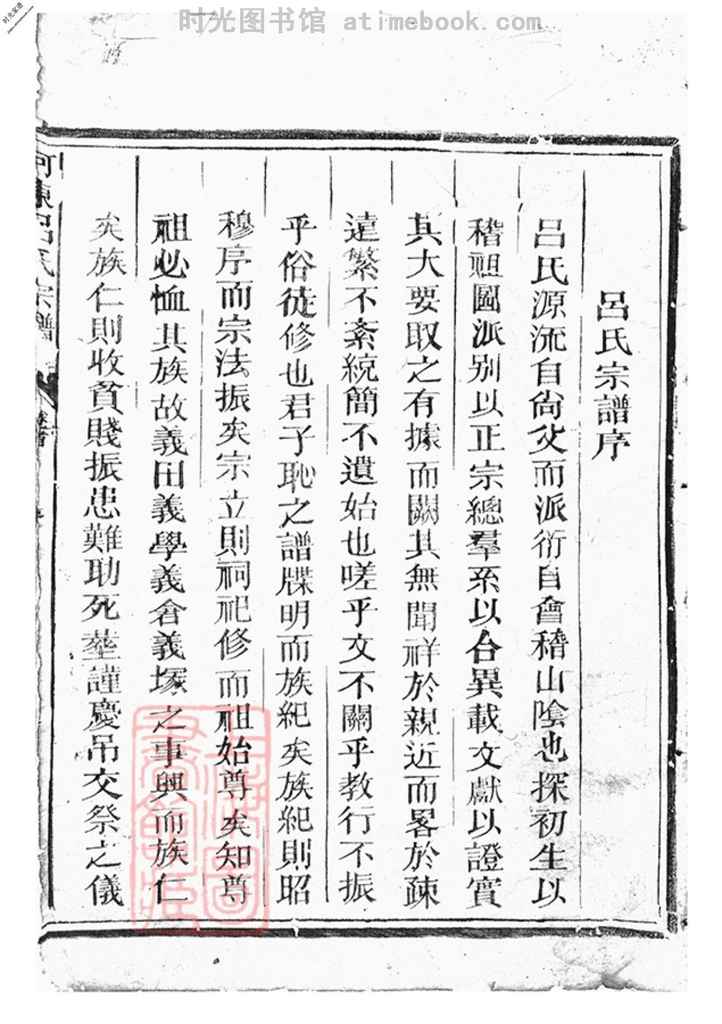 时光图书馆 atimebook.com
呂氏宗譜序
呂氏源流自尙父而派衍自會稽山陰也探初生以
稽祖圖派别以正宗總羣系以合異載文獻以證實
其大要取之有據而闕其無聞祥於親近而畧於疎
遠繁不紊統簡不遺始也嗟乎文不關乎教行不振
乎俗徒修也君子恥之譜牒明而族紀矣族紀則昭
穆序而宗法振矣宗立則祠祀修而祖始尊矣知尊
祖必恤其族故義田義學義倉義塚之事興而族仁
矣族仁則收貧賤振患難助死塟謹慶吊交祭之儀
河東呂氏宗譜